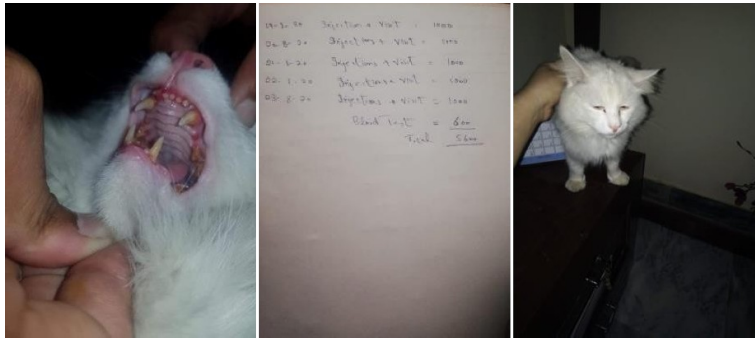 Injection + Visit : 1000
8-20 Injections + Visit = 1000
8-20 Injections + Visit = 1000
8-20 Injections + Visit = 1000
8-20 Injections + Visit = 1000
Blood Test = 600
Total 5600